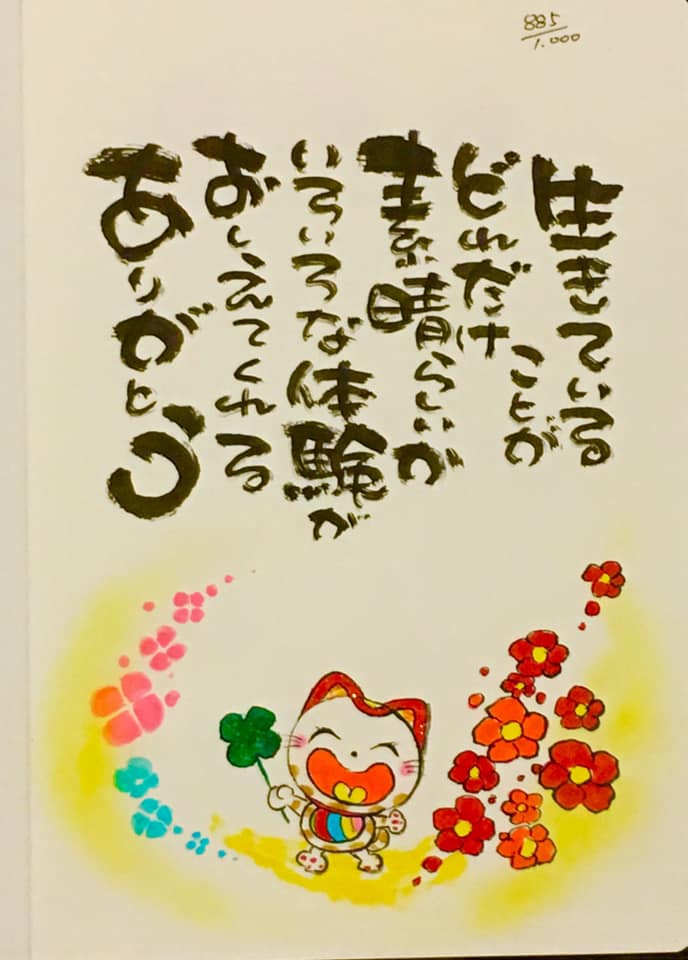 885/1.000
生きている
ことが
どれだけ
素晴らしいか
いろいろな体験が
おしえてくれる
ありがとう